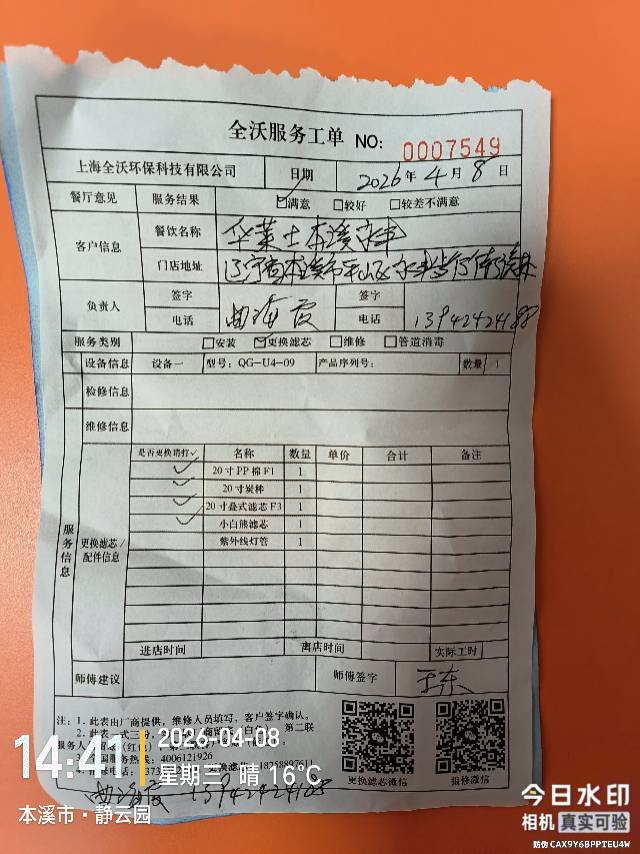 全沃服务工单 NO: 0007549
上海全沃环保科技有限公司 日期 2026年4月8日
餐厅意见 服务结果 ☑满意 □较好 □较差不满意
客户信息 餐饮名称 华莱士本溪
门店地址 辽宁省本溪市平山区
负责人 签字 曲海霞 签字
电话 电话 13942424188
服务类别 □安装 ☑更换滤芯 □维修 □管道消毒
设备信息 设备一 型号：QG-U4-09 产品序列号： 数量 1
检修信息
维修信息
服务信息
更换滤芯/配件信息
是否更换请打✓ 名称 数量 单价 合计 备注
✓ 20寸PP棉F1 1
✓ 20寸炭棒 1
✓ 20寸叠式滤芯F3 1
✓ 小白熊滤芯 1
紫外线灯管 1
进店时间 离店时间 实际工时
师傅建议 师傅签字 于东
注：1.此表由厂商提供，维修人员填写，客户签字确认。
2.此表一式三 第二联
服务人
国服务热线：4006121926
更换滤芯微信 报修微信
曲海霞 13942424188
14:41 2026-04-08
星期三 晴 16℃
本溪市·静云园
今日水印
相机 真实可验
防伪 CAX9Y6BPPTEU4W